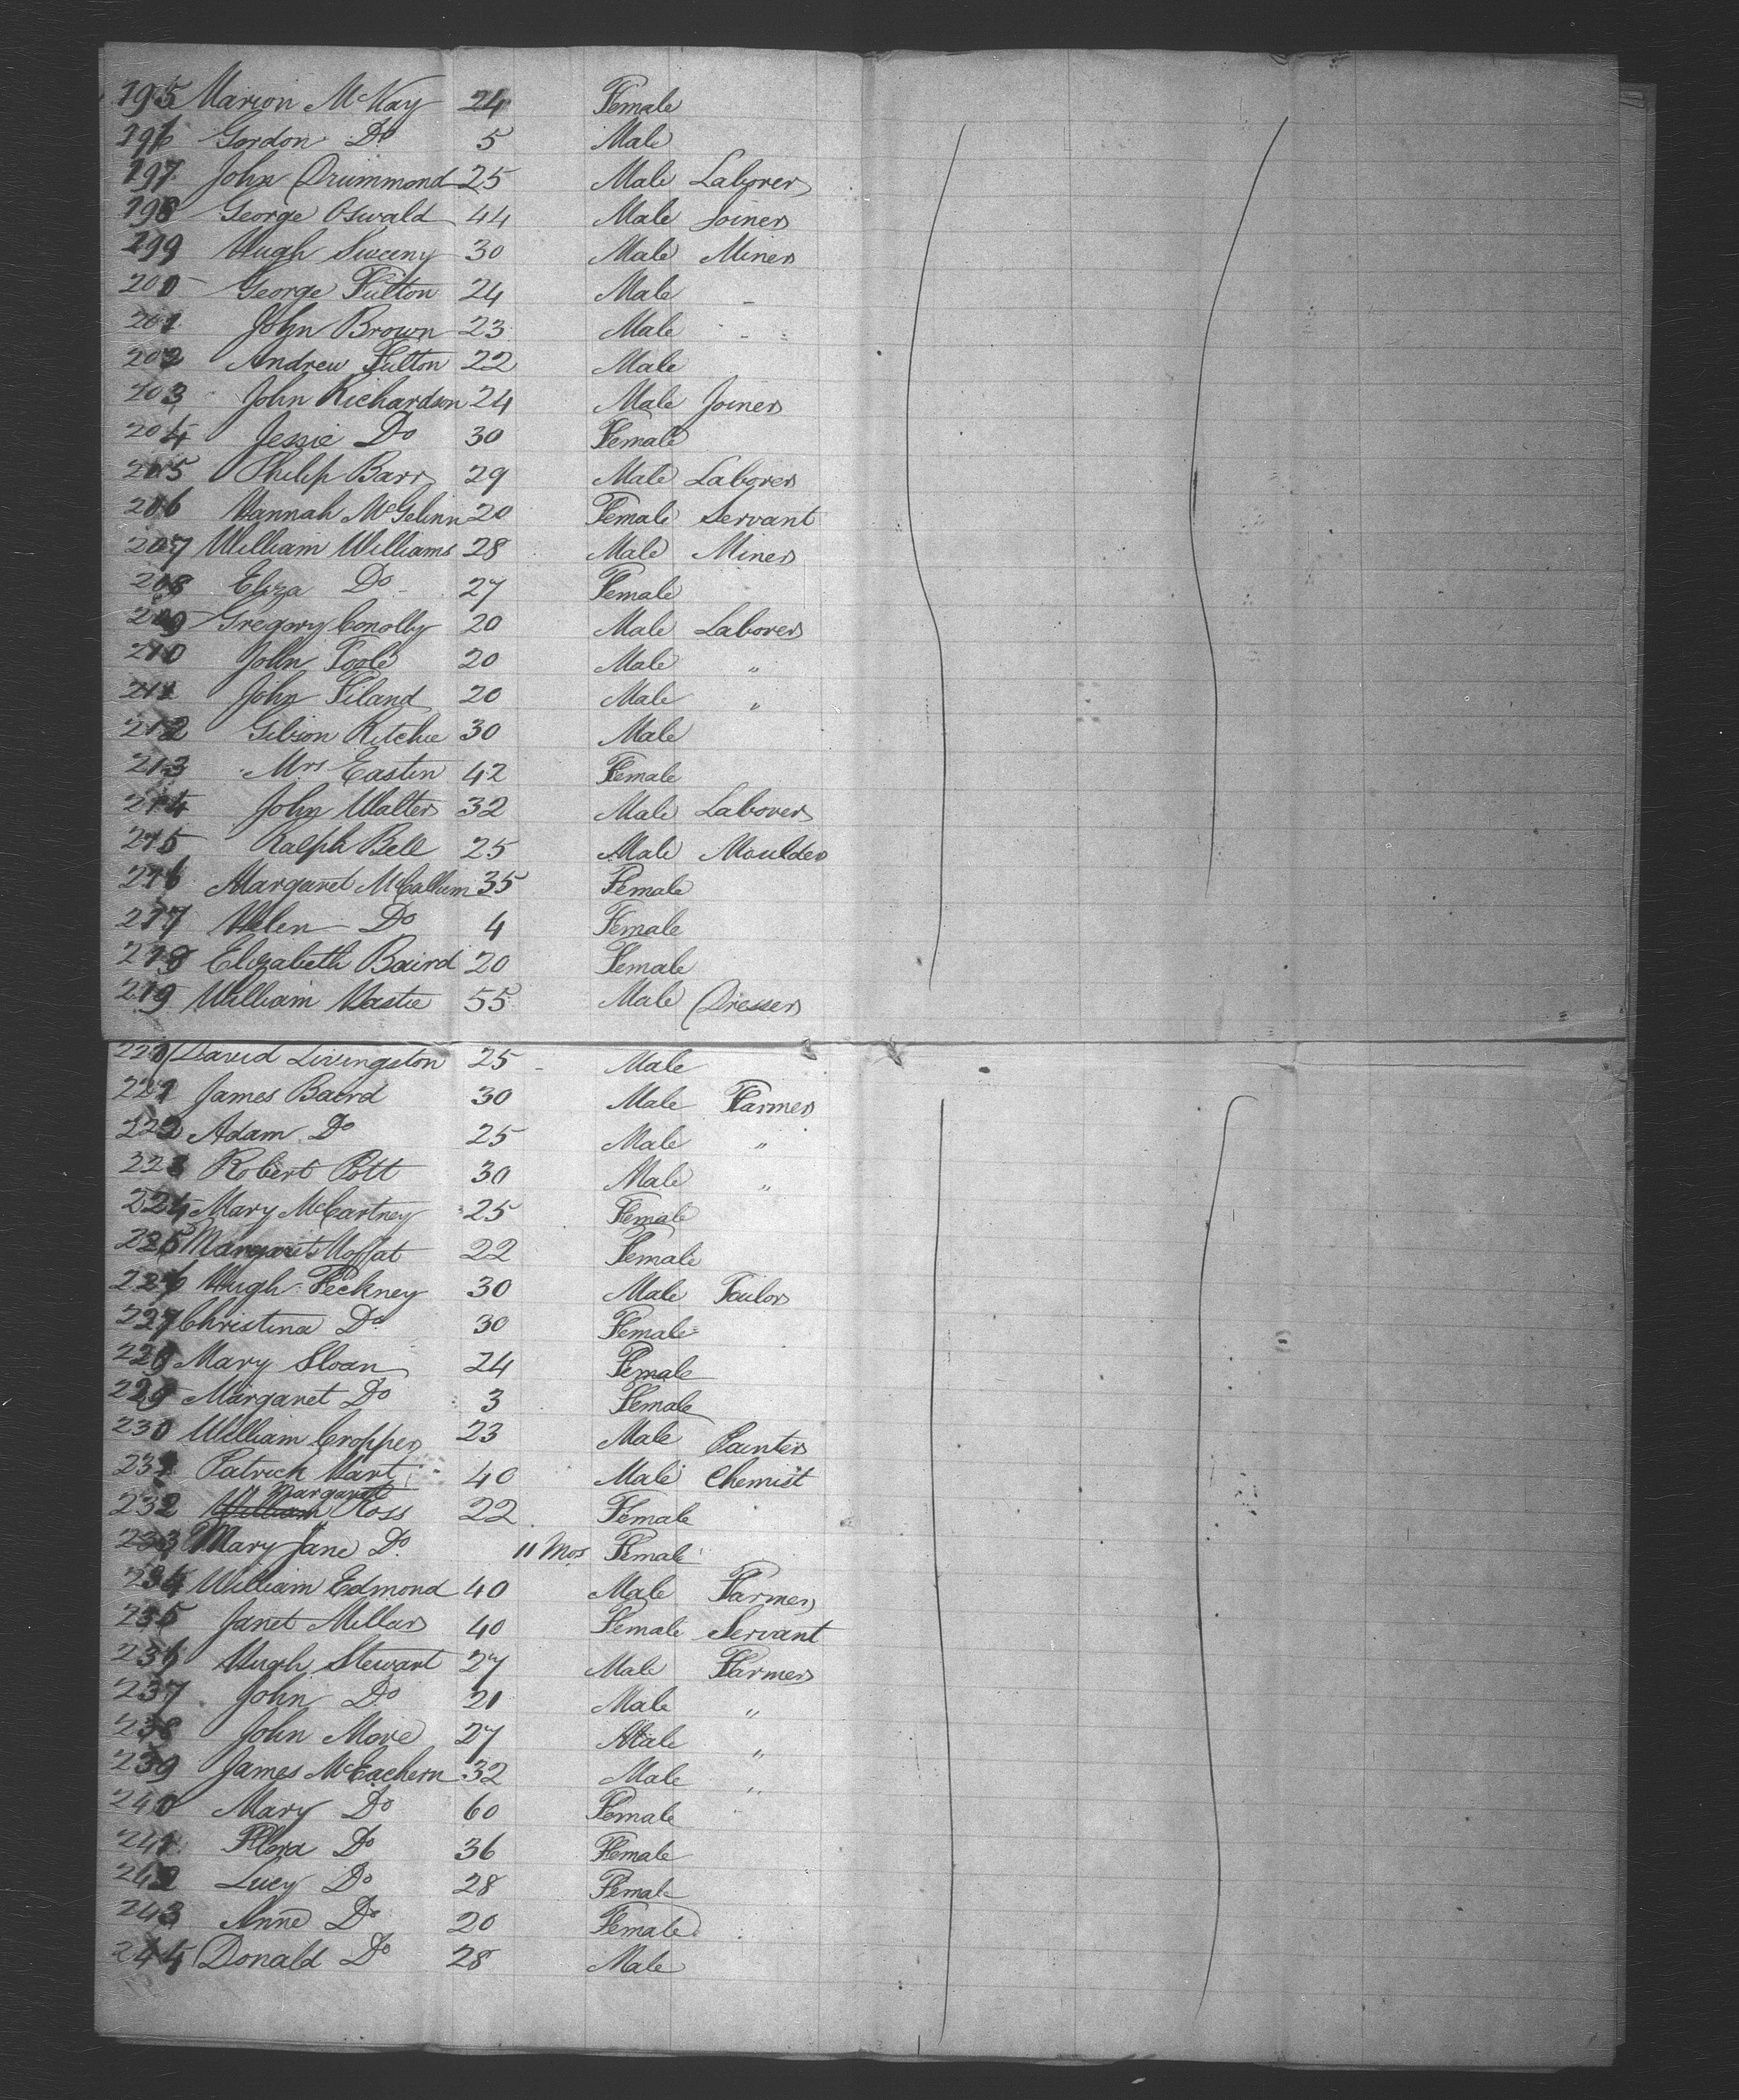 195 Marion McKay 24 Female
196 Gordon Do 5 Male
197 John Drummond 25 Male Laborer
198 George Oswald 44 Male Joiner
199 Hugh Sweeny 30 Male Miner
200 George Fulton 24 Male "
201 John Brown 23 Male "
202 Andrew Fulton 22 Male
203 John Richardson 24 Male Joiner
204 Jessie Do 30 Female
205 Philip Barr 29 Male Laborer
206 Hannah McGelinn 20 Female Servant
207 William Williams 28 Male Miner
208 Eliza Do 27 Female
209 Gregory Conolly 20 Male Laborer
210 John Toole 20 Male "
211 John Filand 20 Male "
212 Gibson Ritchie 30 Male
213 Mrs Eastin 42 Female
214 John Walter 32 Male Laborer
215 Ralph Bell 25 Male Moulder
216 Margaret McCallum 35 Female
217 Helen Do 4 Female
218 Elizabeth Baird 20 Female
219 William Hastie 55 Male Dresser
220 David Livingston 25 Male
221 James Baird 30 Male Farmer
222 Adam Do 25 Male "
223 Robert Pott 30 Male "
224 Mary McCartney 25 Female
225 Margaret Moffat 22 Female
226 Hugh Feckney 30 Male Tailor
227 Christina Do 30 Female
228 Mary Sloan 24 Female
229 Margaret Do 3 Female
230 William Cropper 23 Male Painter
231 Patrick Hart 40 Male Chemist
232 William Margaret Ross 22 Female
233 Mary Jane Do 11 Mos Female
234 William Edmond 40 Male Farmer
235 Janet Millar 40 Female Servant
236 Hugh Stewart 27 Male Farmer
237 John Do 21 Male "
238 John More 27 Male "
239 James McEachern 32 Male "
240 Mary Do 60 Female
241 Flora Do 36 Female
242 Lucy Do 28 Female
243 Anne Do 20 Female
244 Donald Do 28 Male